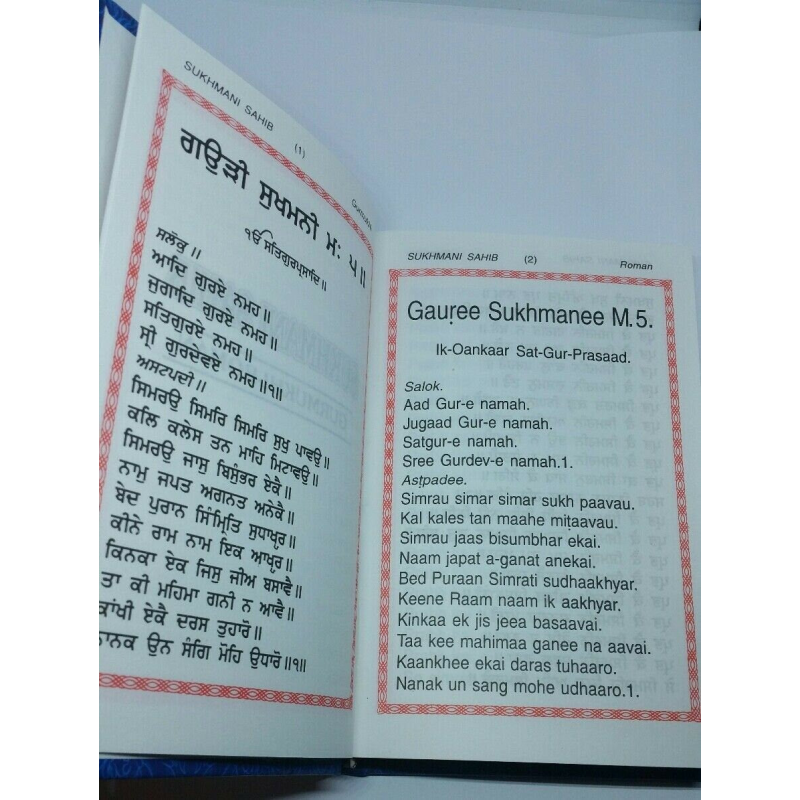 SUKHMANI SAHIB (1)
ਗਉੜੀ ਸੁਖਮਨੀ ਮਃ ੫॥
ੴ ਸਤਿਗੁਰਪ੍ਰਸਾਦਿ॥
ਸਲੋਕੁ॥
ਆਦਿ ਗੁਰਏ ਨਮਹ॥
ਜੁਗਾਦਿ ਗੁਰਏ ਨਮਹ॥
ਸਤਿਗੁਰਏ ਨਮਹ॥
ਸ੍ਰੀ ਗੁਰਦੇਵਏ ਨਮਹ॥੧॥
ਅਸਟਪਦੀ॥
ਸਿਮਰਉ ਸਿਮਰਿ ਸਿਮਰਿ ਸੁਖੁ ਪਾਵਉ॥
ਕਲਿ ਕਲੇਸ ਤਨ ਮਾਹਿ ਮਿਟਾਵਉ॥
ਸਿਮਰਉ ਜਾਸੁ ਬਿਸੁੰਭਰ ਏਕੈ॥
ਨਾਮੁ ਜਪਤ ਅਗਨਤ ਅਨੇਕੈ॥
ਬੇਦ ਪੁਰਾਨ ਸਿੰਮ੍ਰਿਤਿ ਸੁਧਾਖੵਰ॥
ਕੀਨੇ ਰਾਮ ਨਾਮ ਇਕ ਆਖੵਰ॥
ਕਿਨਕਾ ਏਕ ਜਿਸੁ ਜੀਅ ਬਸਾਵੈ॥
ਤਾ ਕੀ ਮਹਿਮਾ ਗਨੀ ਨ ਆਵੈ॥
ਕਾਂਖੀ ਏਕੈ ਦਰਸ ਤੁਹਾਰੋ॥
ਨਾਨਕ ਉਨ ਸੰਗਿ ਮੋਹਿ ਉਧਾਰੋ॥੧॥
SUKHMANI SAHIB (2) Roman
Gauṛee Sukhmanee M.5.
Ik-Oankaar Sat-Gur-Prasaad.
Salok.
Aad Gur-e namah.
Jugaad Gur-e namah.
Satgur-e namah.
Sree Gurdev-e namah.1.
Asṭpadee.
Simrau simar simar sukh paavau.
Kal kales tan maahe miṭaavau.
Simrau jaas bisumbhar ekai.
Naam japat a-ganat anekai.
Bed Puraan Simrati sudhaakhyar.
Keene Raam naam ik aakhyar.
Kinkaa ek jis jeea basaavai.
Taa kee mahimaa ganee na aavai.
Kaankhee ekai daras tuhaaro.
Nanak un sang mohe udhaaro.1.